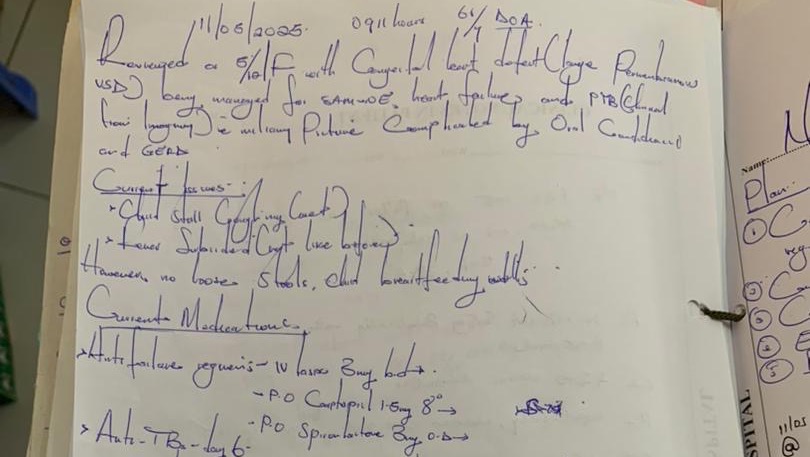 11/05/2025. 0911 hours 61/7 DOA.
Reviewed a 5/12 F with Congenital heart defect (large Perimembranous
VSD) being managed for SAM WOE, heart failure, and PTB (clinical
from Imaging) c miliary Picture Complicated by Oral Candidiasis
and GERD
Current Issues:-
> Child Still Coughing (wet)
> Fever Subsided (not like before)
However, no loose Stools, child breastfeeding well
Current Medications.
> Anti failure regimens - IV lasix 3mg b.d →.
- P.O Captopril 1.5mg 8° →
- P.O Spironolactone 3mg o.d →
> Anti-TBs - day 6-
Name:
Plan:
①
②
③
④
⑤
11/05
@
SPITAL